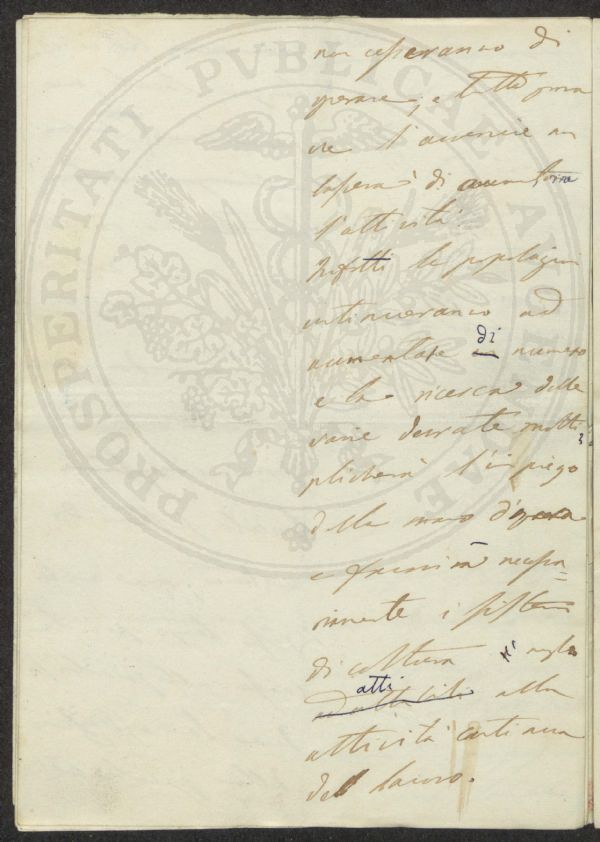 PROSPERITATI PVBLICAE AVGENDAE
non cesseranno di
operare, e tutto porta
ne l'
l'opera di aumentarne
l'attività.
Infatti le popolazioni
continueranno ad
aumentare di numero
e la ricerca delle
varie derrate molti
plicherà l'impiego
della mano d'opera
e necessa=
riamente i sistemi
di coltura
atti
alla
attività continua
del lavoro.